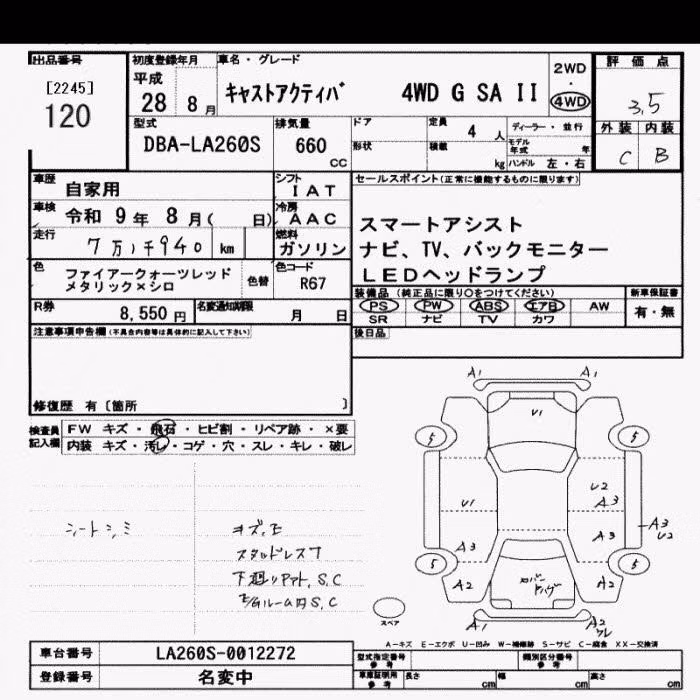 出品番号
[2245]
120
初度登録年月
平成
28 8月
車名・グレード
キャストアクティバ 4WD G SA II
2WD
4WD
評価点
3.5
外装 内装
C B
型式
DBA-LA260S
排気量
660
cc
ドア
形状
定員
4人
積載
kg
ディーラー・並行
モデル年式 年
ハンドル 左・右
車歴
自家用
シフト
IAT
車検
令和 9年 8月( 日)
冷房
AAC
走行
7万1千940 km
燃料
ガソリン
色
ファイアークォーツレッド
メタリック×シロ
色替
色コード
R67
R券
8,550円
名変通知期限
月 日
セールスポイント(正常に機能するものに限ります)
スマートアシスト
ナビ、TV、バックモニター
LEDヘッドランプ
装備品 (純正品に限り○をつけてください)
新車保証書
PS PW ABS エアB AW
SR ナビ TV カワ
有・無
後日品
注意事項申告欄(不具合内容等は具体的に記入して下さい)
修復歴 有〔箇所 〕
検査員
記入欄
FW キズ・飛石・ヒビ割・リペア跡・×要
内装 キズ・汚レ・コゲ・穴・スレ・キレ・破レ
シートシミ
キズ、E
スタッドレス7
下廻りアト、S,C
E/Gルーム内S,C
A1 A1
U1
5 5
U1
U2
A3
A3
A3
A3
U2
5 5
A2 A2
カバー
A1 A2
ワレ
スペア
A-キズ E-エクボ U-凹み W-補修跡 S-サビ C-腐食 XX-交換済
車台番号
LA260S-0012272
登録番号
名変中
型式指定番号
参考
類別区分番号
参考
車庫証明用
参考
長さ cm
幅 cm
高さ cm